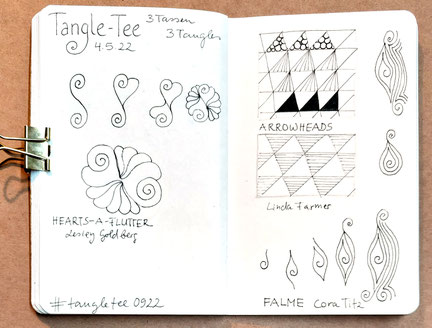 Tangle-Tee
4.5.22
3 Tassen
3 Tangles
HEARTS-A-FLUTTER
Lesley Goldberg
#tangletee 0922
ARROWHEADS
Linda Farmer
FALME Cora Titz